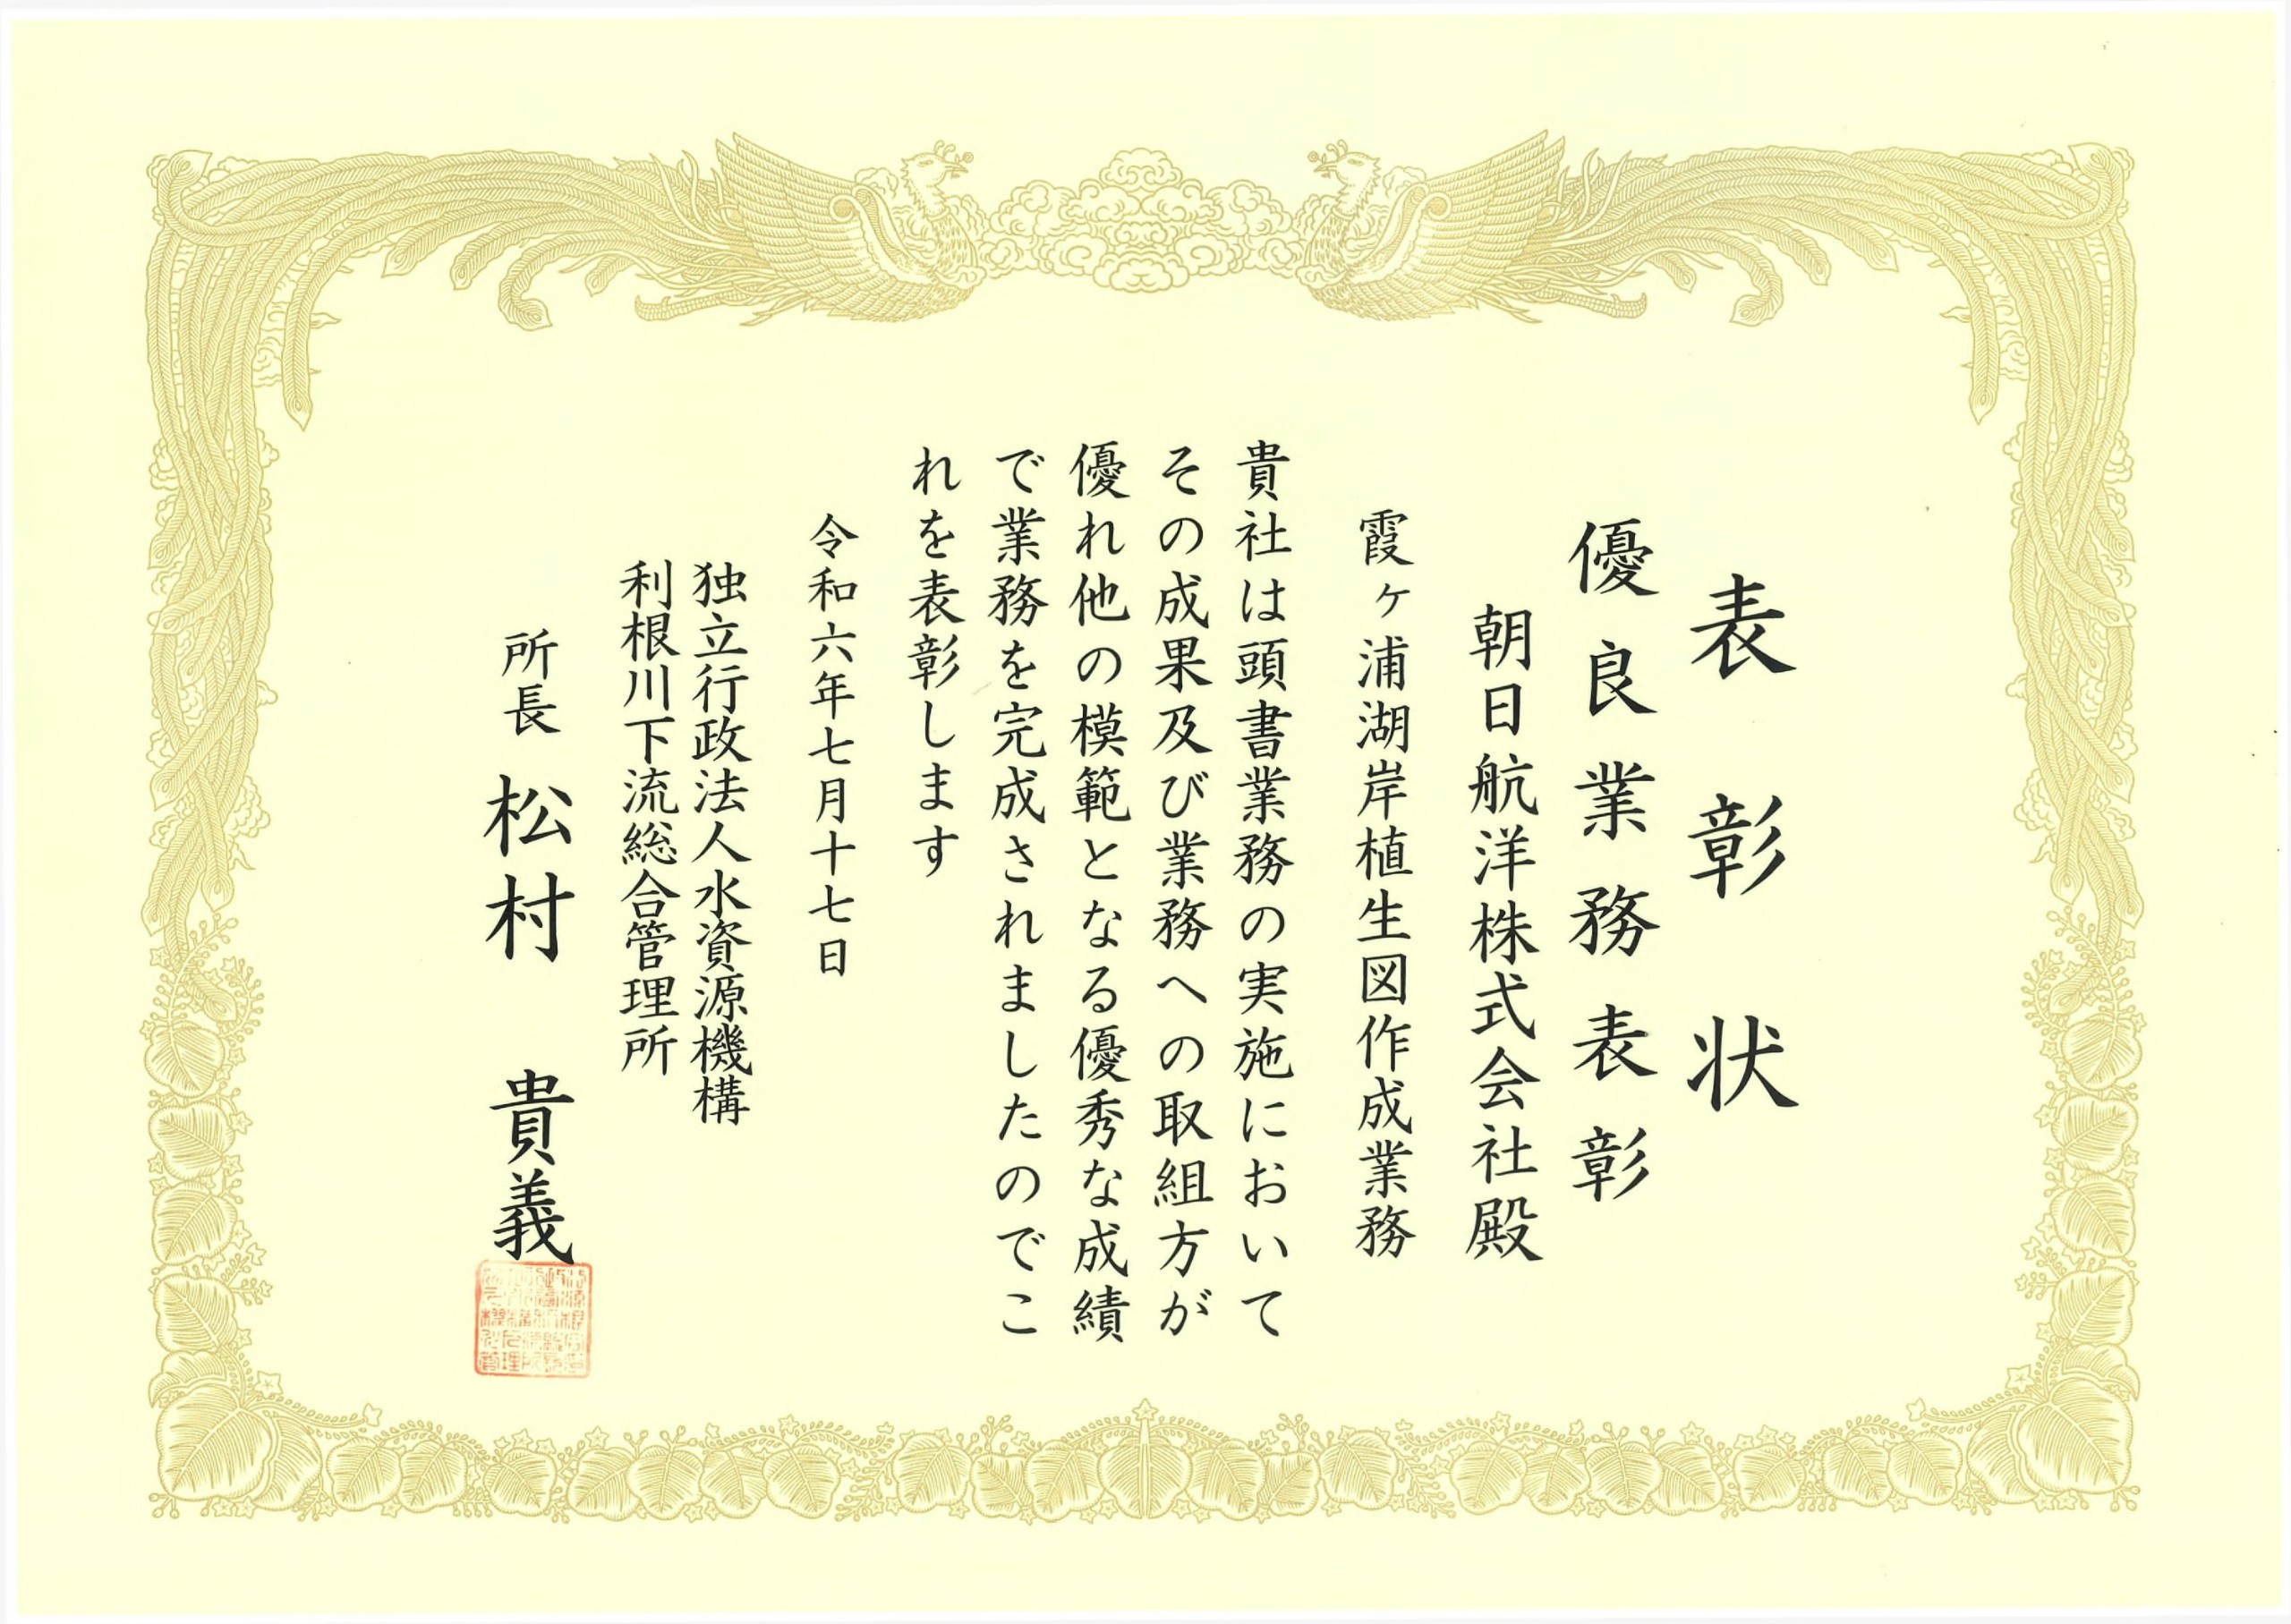 表彰状
優良業務表彰
朝日航洋株式会社殿
霞ヶ浦湖岸植生図作成業務
貴社は頭書業務の実施において
その成果及び業務への取組方が
優れ他の模範となる優秀な成績
で業務を完成されましたのでこ
れを表彰します
令和六年七月十七日
独立行政法人水資源機構
利根川下流総合管理所
所長 松村 貴義